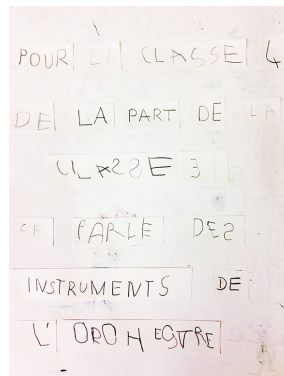 POUR LA CLASSE 4
DE LA PART DE LA
CLASSE 3
CA PARLE DES
INSTRUMENTS DE
L'ORCHESTRE